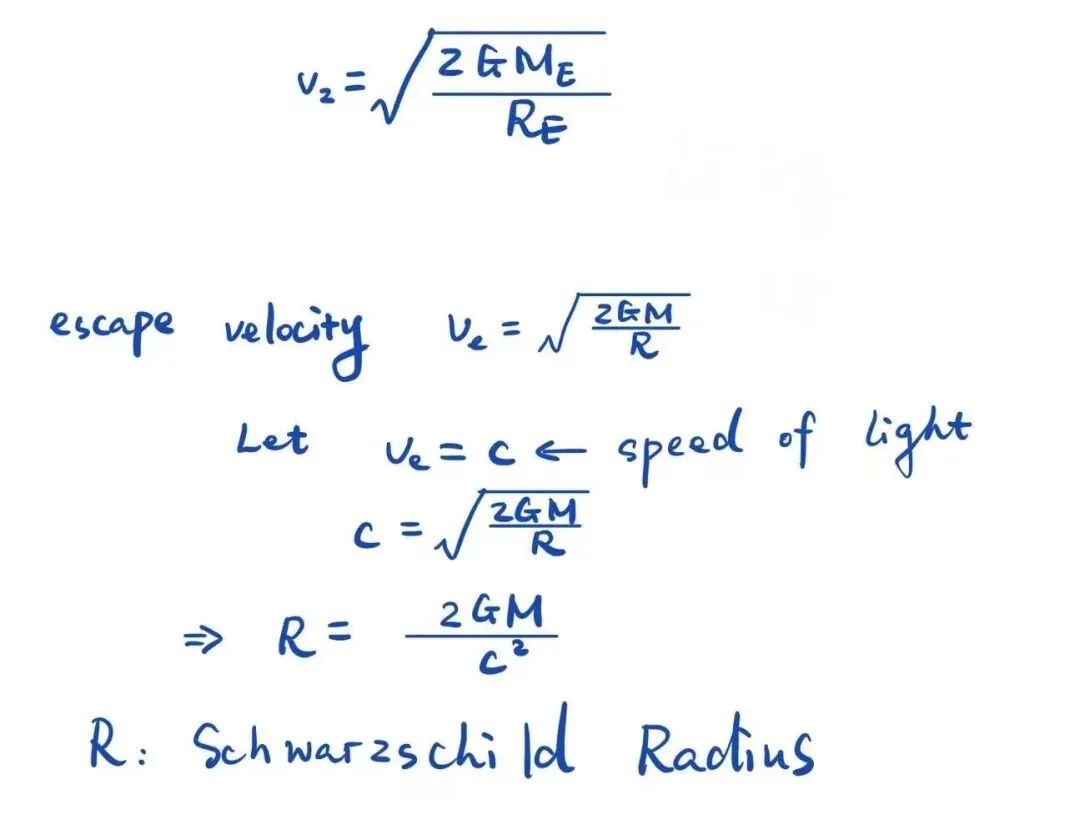 v₂ = √(2GM_E / R_E)
escape velocity v_e = √(2GM / R)
Let v_e = c ← speed of light
c = √(2GM / R)
⇒ R = 2GM / c²
R: Schwarzschild Radius